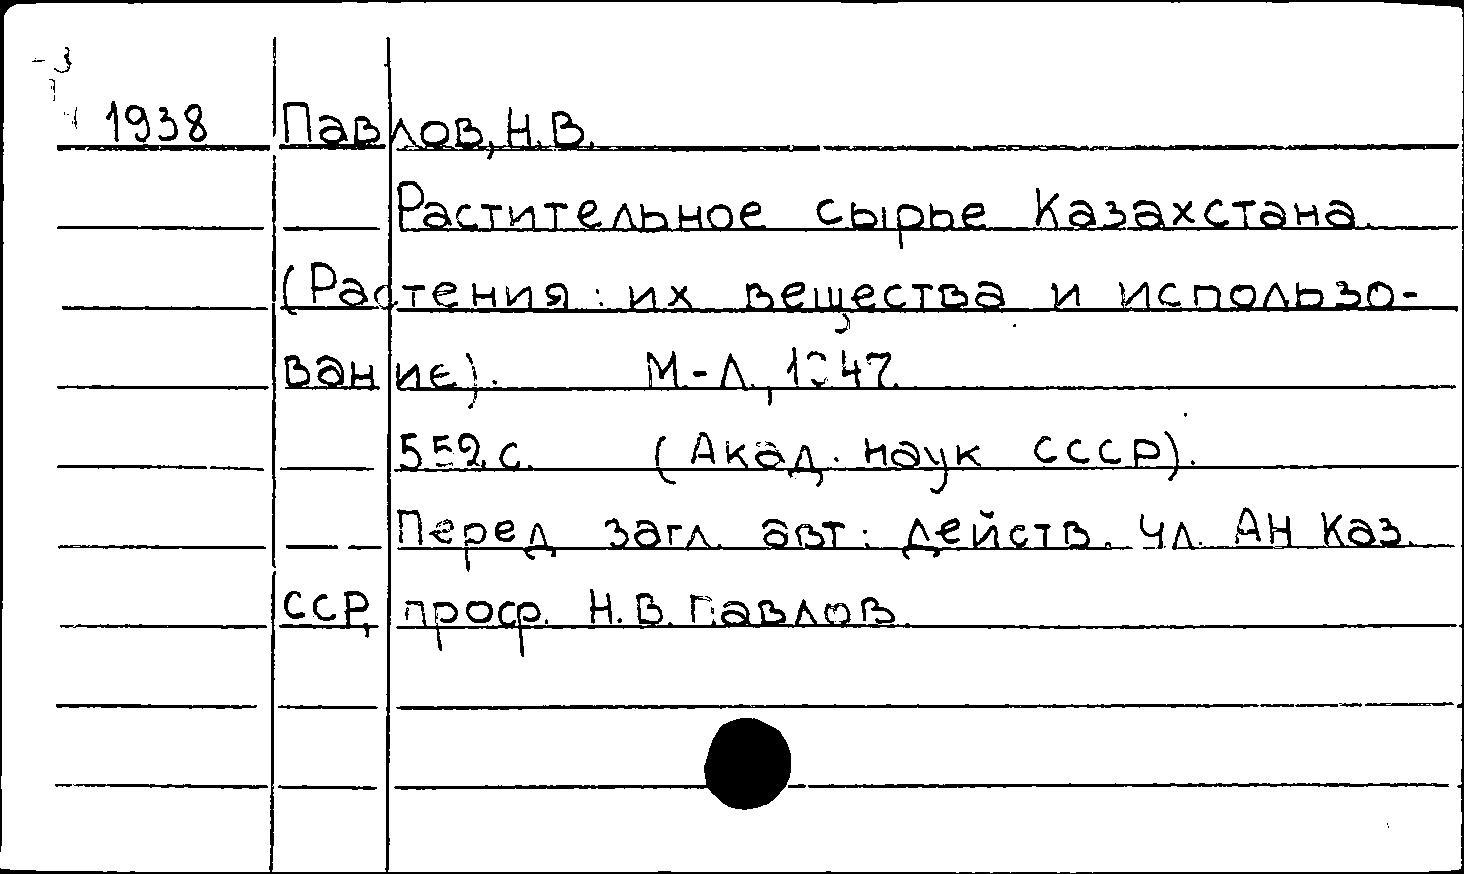 -3
1938 Павлов, Н.В.
Растительное сырье Казахстана.
(Растения: их вещества и использо-
вание). М.-Л., 1947.
552 с. (Акад. наук СССР).
Перед загл. авт.: действ. чл. АН Каз.
ССР, проф. Н.В. Павлов.